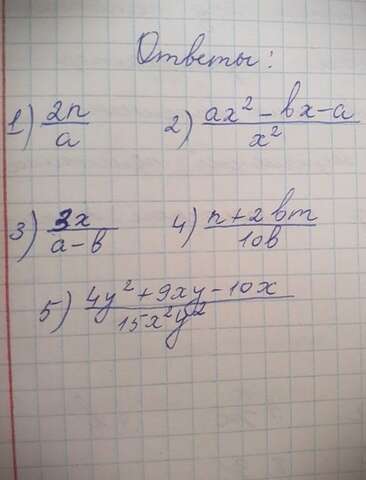 Ответы:
1) 2n/a 2) (ax² - вx - a)/x²
3) 3x/(a - в) 4) (n + 2вm)/10в
5) (4y² + 9xy - 10x)/15x²y²